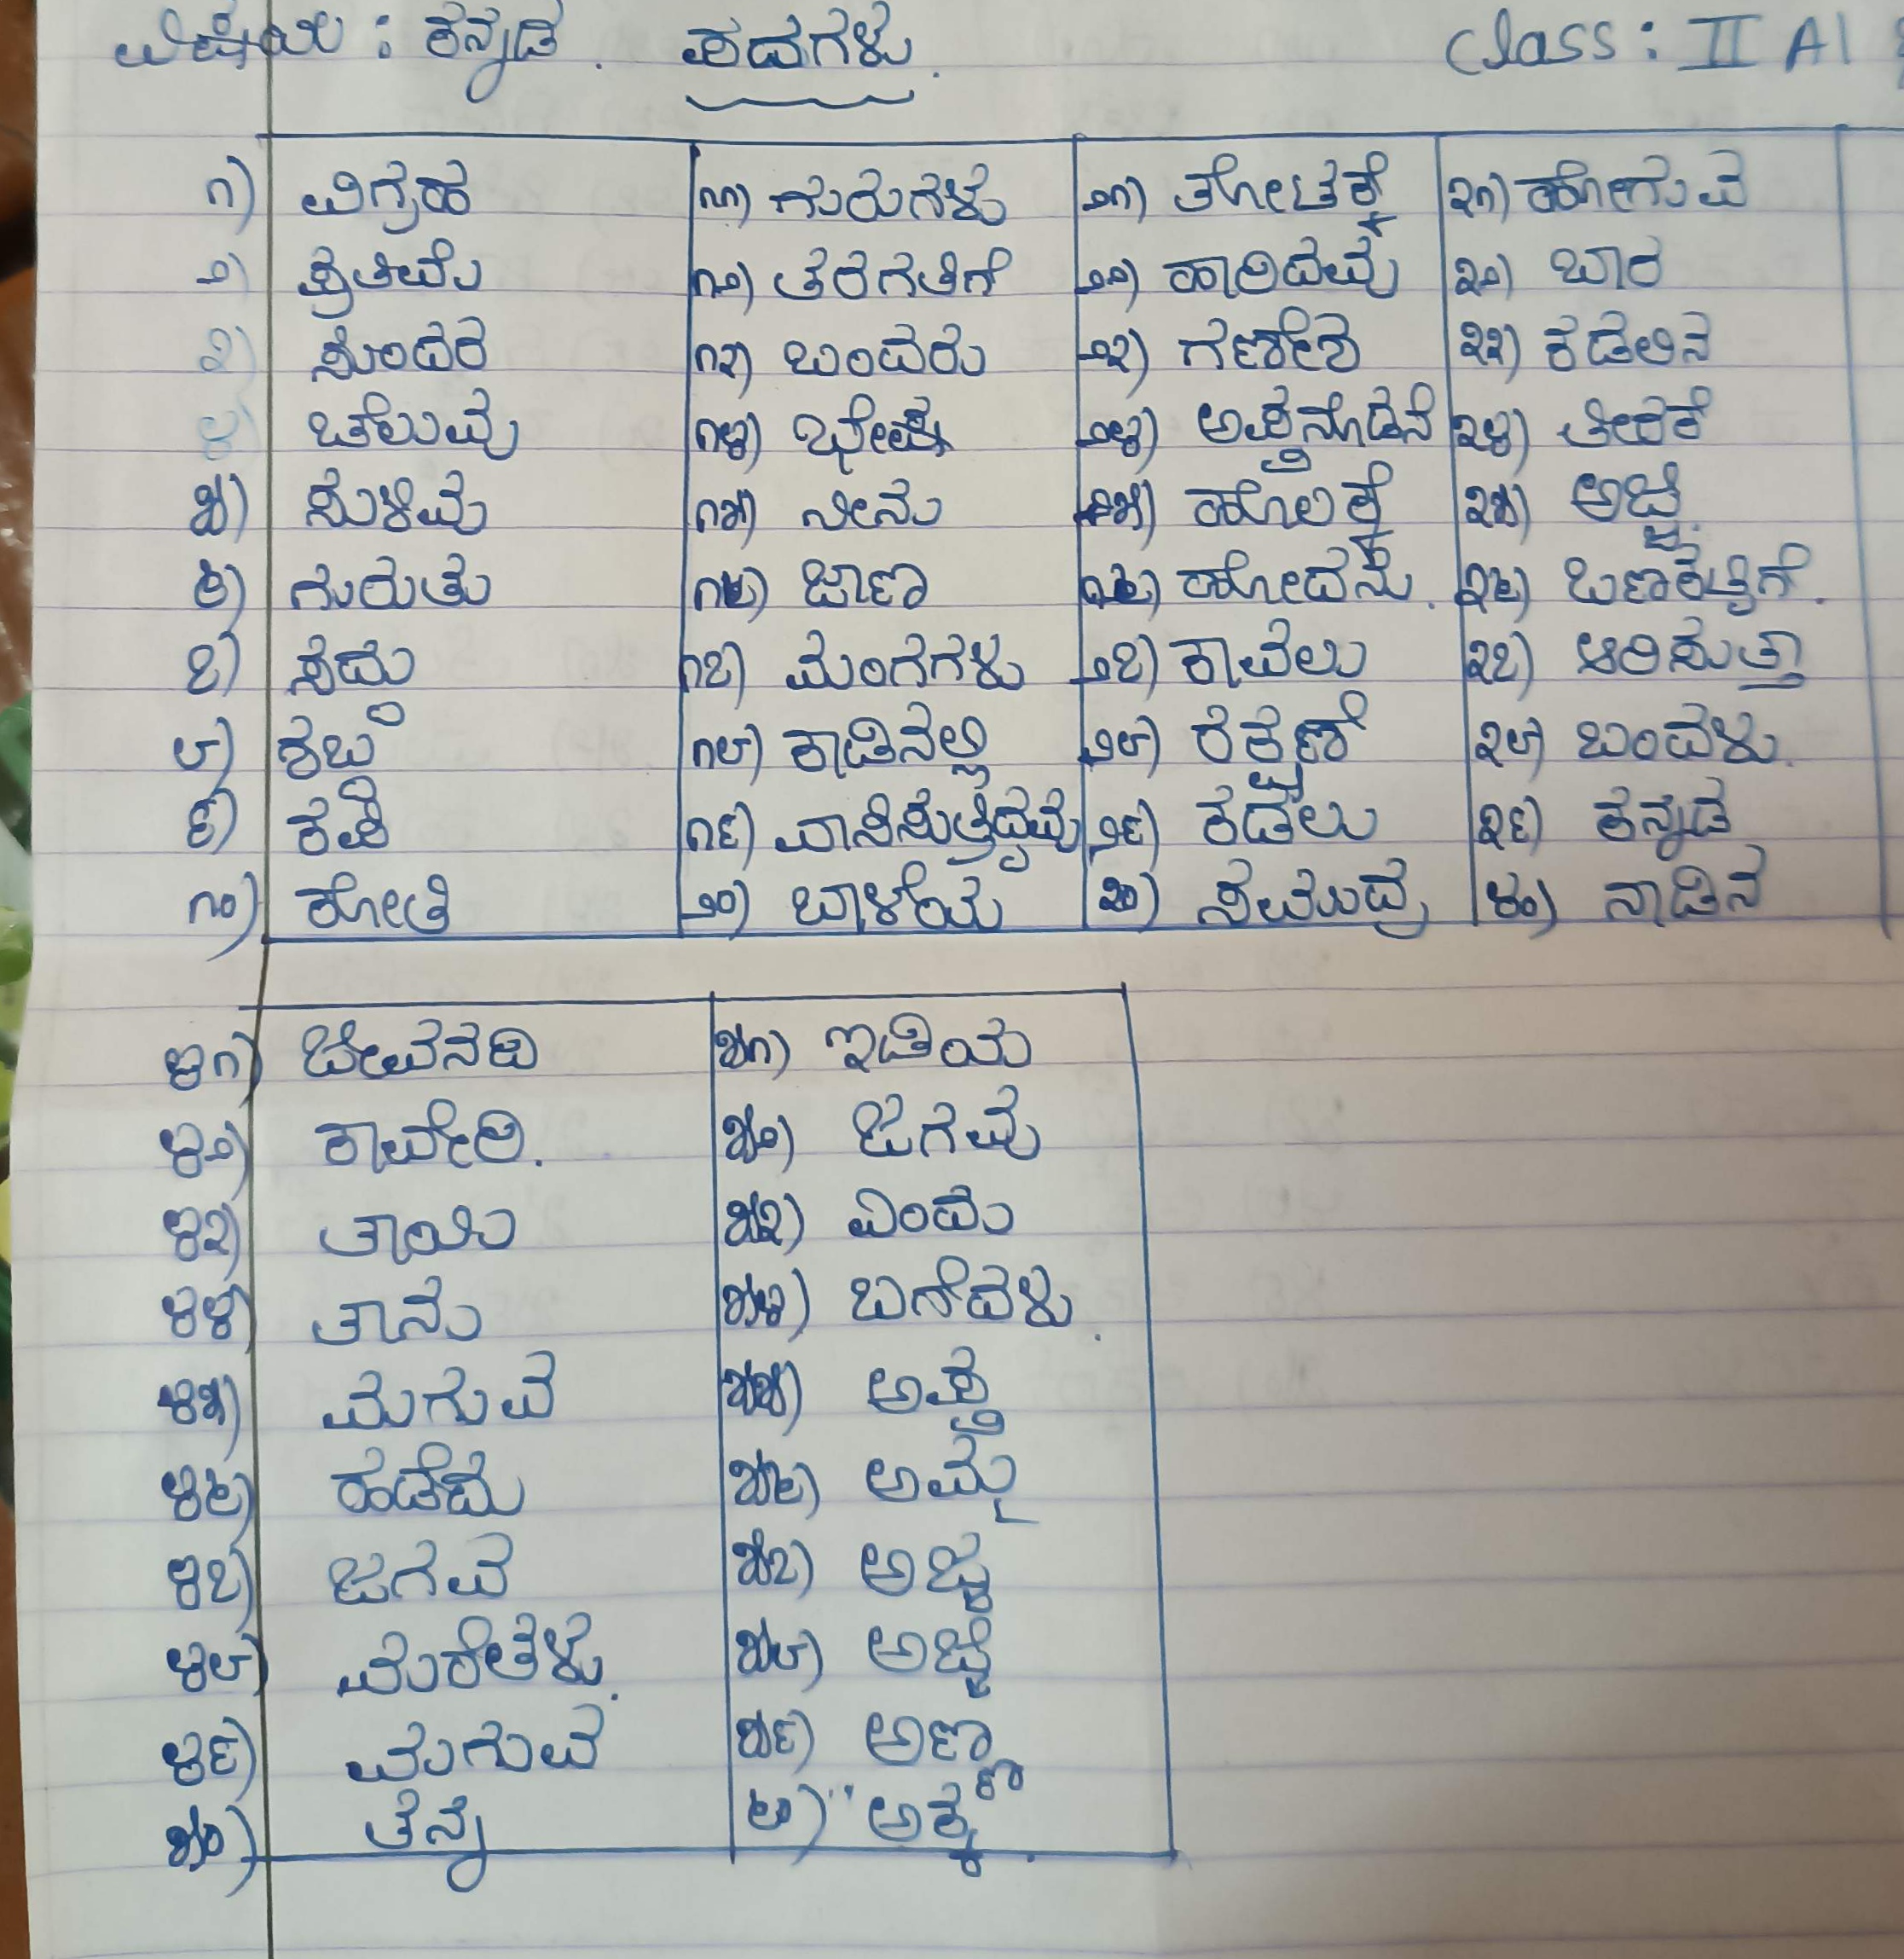 ವಿಷಯ : ಕನ್ನಡ. ಪದಗಳು. Class : II A1
೧) ವಿಗ್ರಹ ೧೧) ಗುರುಗಳು ೨೧) ತೋಟಕ್ಕೆ ೩೧) ಹೋಗುವೆ
೨) ಪ್ರತಿಮೆ ೧೨) ತರಗತಿಗೆ ೨೨) ಹಾರಿದೆವು ೩೨) ಬಾರ
೩) ಸುಂದರ ೧೩) ಬಂದರು ೨೩) ಗಣೇಶ ೩೩) ಕಡಲಿನ
೪) ಚೆಲುವು ೧೪) ಭೇಷ್ ೨೪) ಅಪ್ಪನೊಡನೆ ೩೪) ತೀರಕೆ
೫) ಸುಳಿವು ೧೫) ನೀನು ೨೫) ಹೊಲಕ್ಕೆ ೩೫) ಅಜ್ಜಿ.
೬) ಗುರುತು ೧೬) ಜಾಣ ೨೬) ಹೋದನು. ೩೬)
೭) ಸದ್ದು ೧೭) ಮಂಗಗಳು ೨೭) ಕಾವಲು ೩೭) ಅರಿಸುತ್ತಾ
೮) ಶಬ್ದ ೧೮) ಕಾಡಿನಲ್ಲಿ ೨೮) ರಕ್ಷಣೆ ೩೮) ಬಂದಳು.
೯) ಕಪಿ ೧೯) ವಾಸಿಸುತ್ತಿದ್ದೆವು ೨೯) ಕಡಲು ೩೯) ಕನ್ನಡ
೧೦) ಕೋತಿ ೨೦) ಬಾಳೆಯ ೩೦) ಸಮುದ್ರ ೪೦) ನಾಡಿನ
೪೧) ಜೀವನದಿ ೫೧) ಇಡಿಯ
೪೨) ಕಾವೇರಿ. ೫೨) ಜಗವು
೪೩) ತಾಯಿ ೫೩) ಎಂದು
೪೪) ತಾನು ೫೪) ಬಗೆದಳು.
೪೫) ಮಗುವ ೫೫) ಅಪ್ಪ
೪೬) ಹಡೆದು ೫೬) ಅಮ್ಮ
೪೭) ಜಗವ ೫೭) ಅಜ್ಜ
೪೮) ಮರೆತಳು. ೫೮) ಅಜ್ಜಿ
೪೯) ಮಗುವೆ ೫೯) ಅಣ್ಣ
೫೦) ತನ್ನ ೬೦) ಅಕ್ಕ.